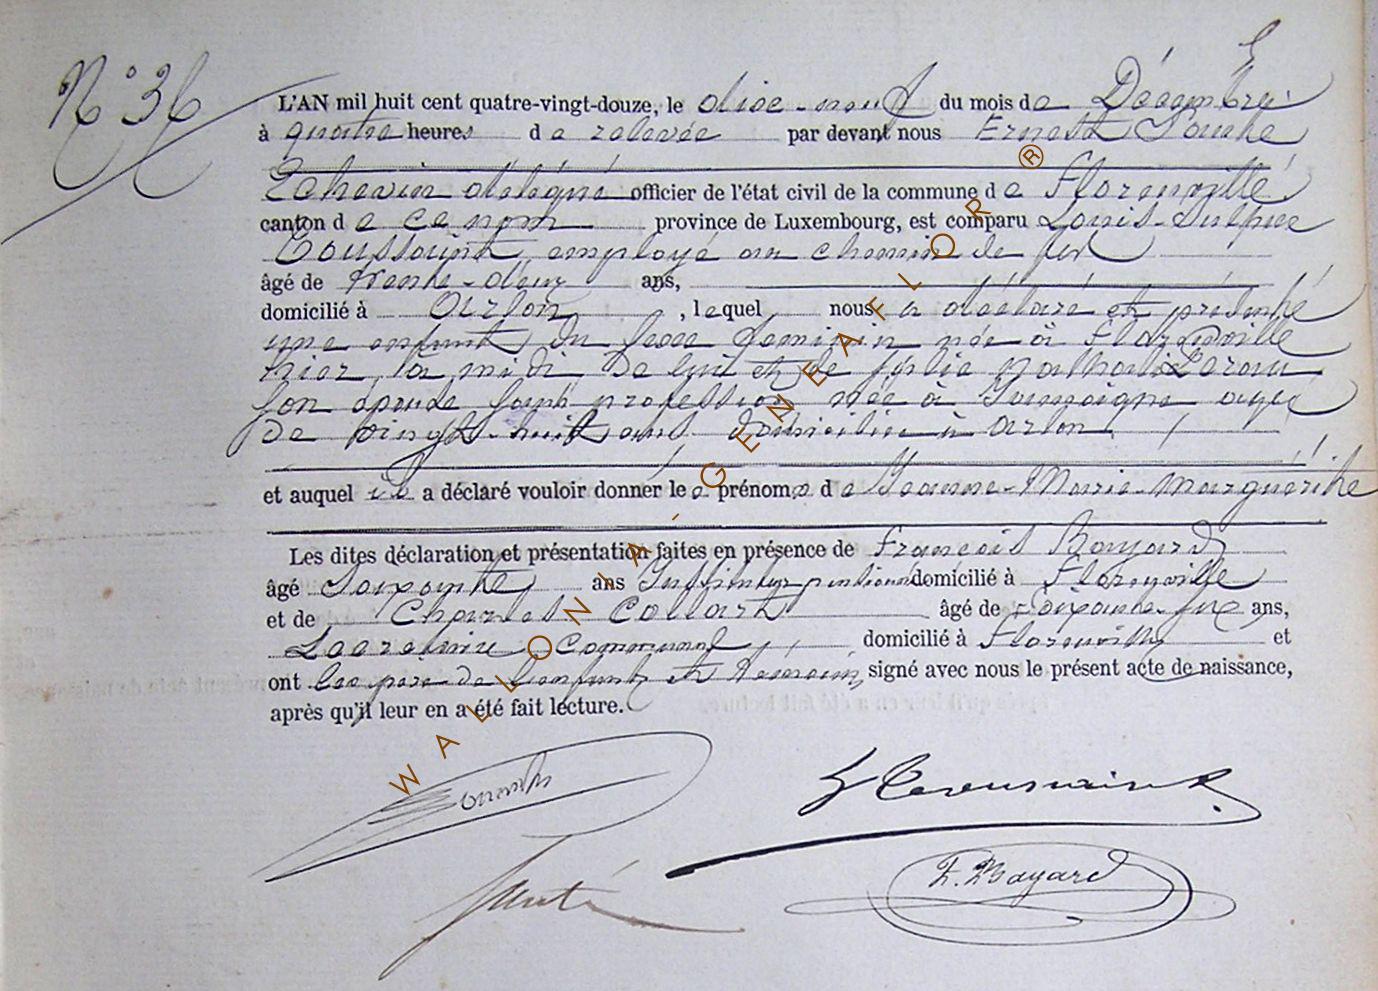 N° 36
L'AN mil huit cent quatre-vingt-douze, le dixe-neuf du mois de Décembre
à quatre heures de relevée par devant nous Ernest
Echevin délégué officier de l'état civil de la commune de Florenville
canton de ce nom province de Luxembourg, est comparu Louis-Sulpice
Toussaint, employé au chemin de fer
âgé de trente-deux ans,
domicilié à Arlon, lequel nous a déclaré et présenté
une enfant du sexe féminin née à Florenville
hier, à midi de lui et de Nathalie
son épouse sans profession née à Jamoigne âgée
de vingt-huit ans domiciliée à Arlon
et auquel il a déclaré vouloir donner les prénoms de Jeanne-Marie-Marguerithe
Les dites déclaration et présentation faites en présence de François Bayard
âgé Soixante ans Instituteur pensionné domicilié à Florenville
et de Charles Collart âgé de ans,
Secrétaire Communal domicilié à Florenville et
ont les père de l'enfant et témoins signé avec nous le présent acte de naissance,
après qu'il leur en a été fait lecture.
Toussaint
F. Bayard
WALLONIA-GENEAFLOR®